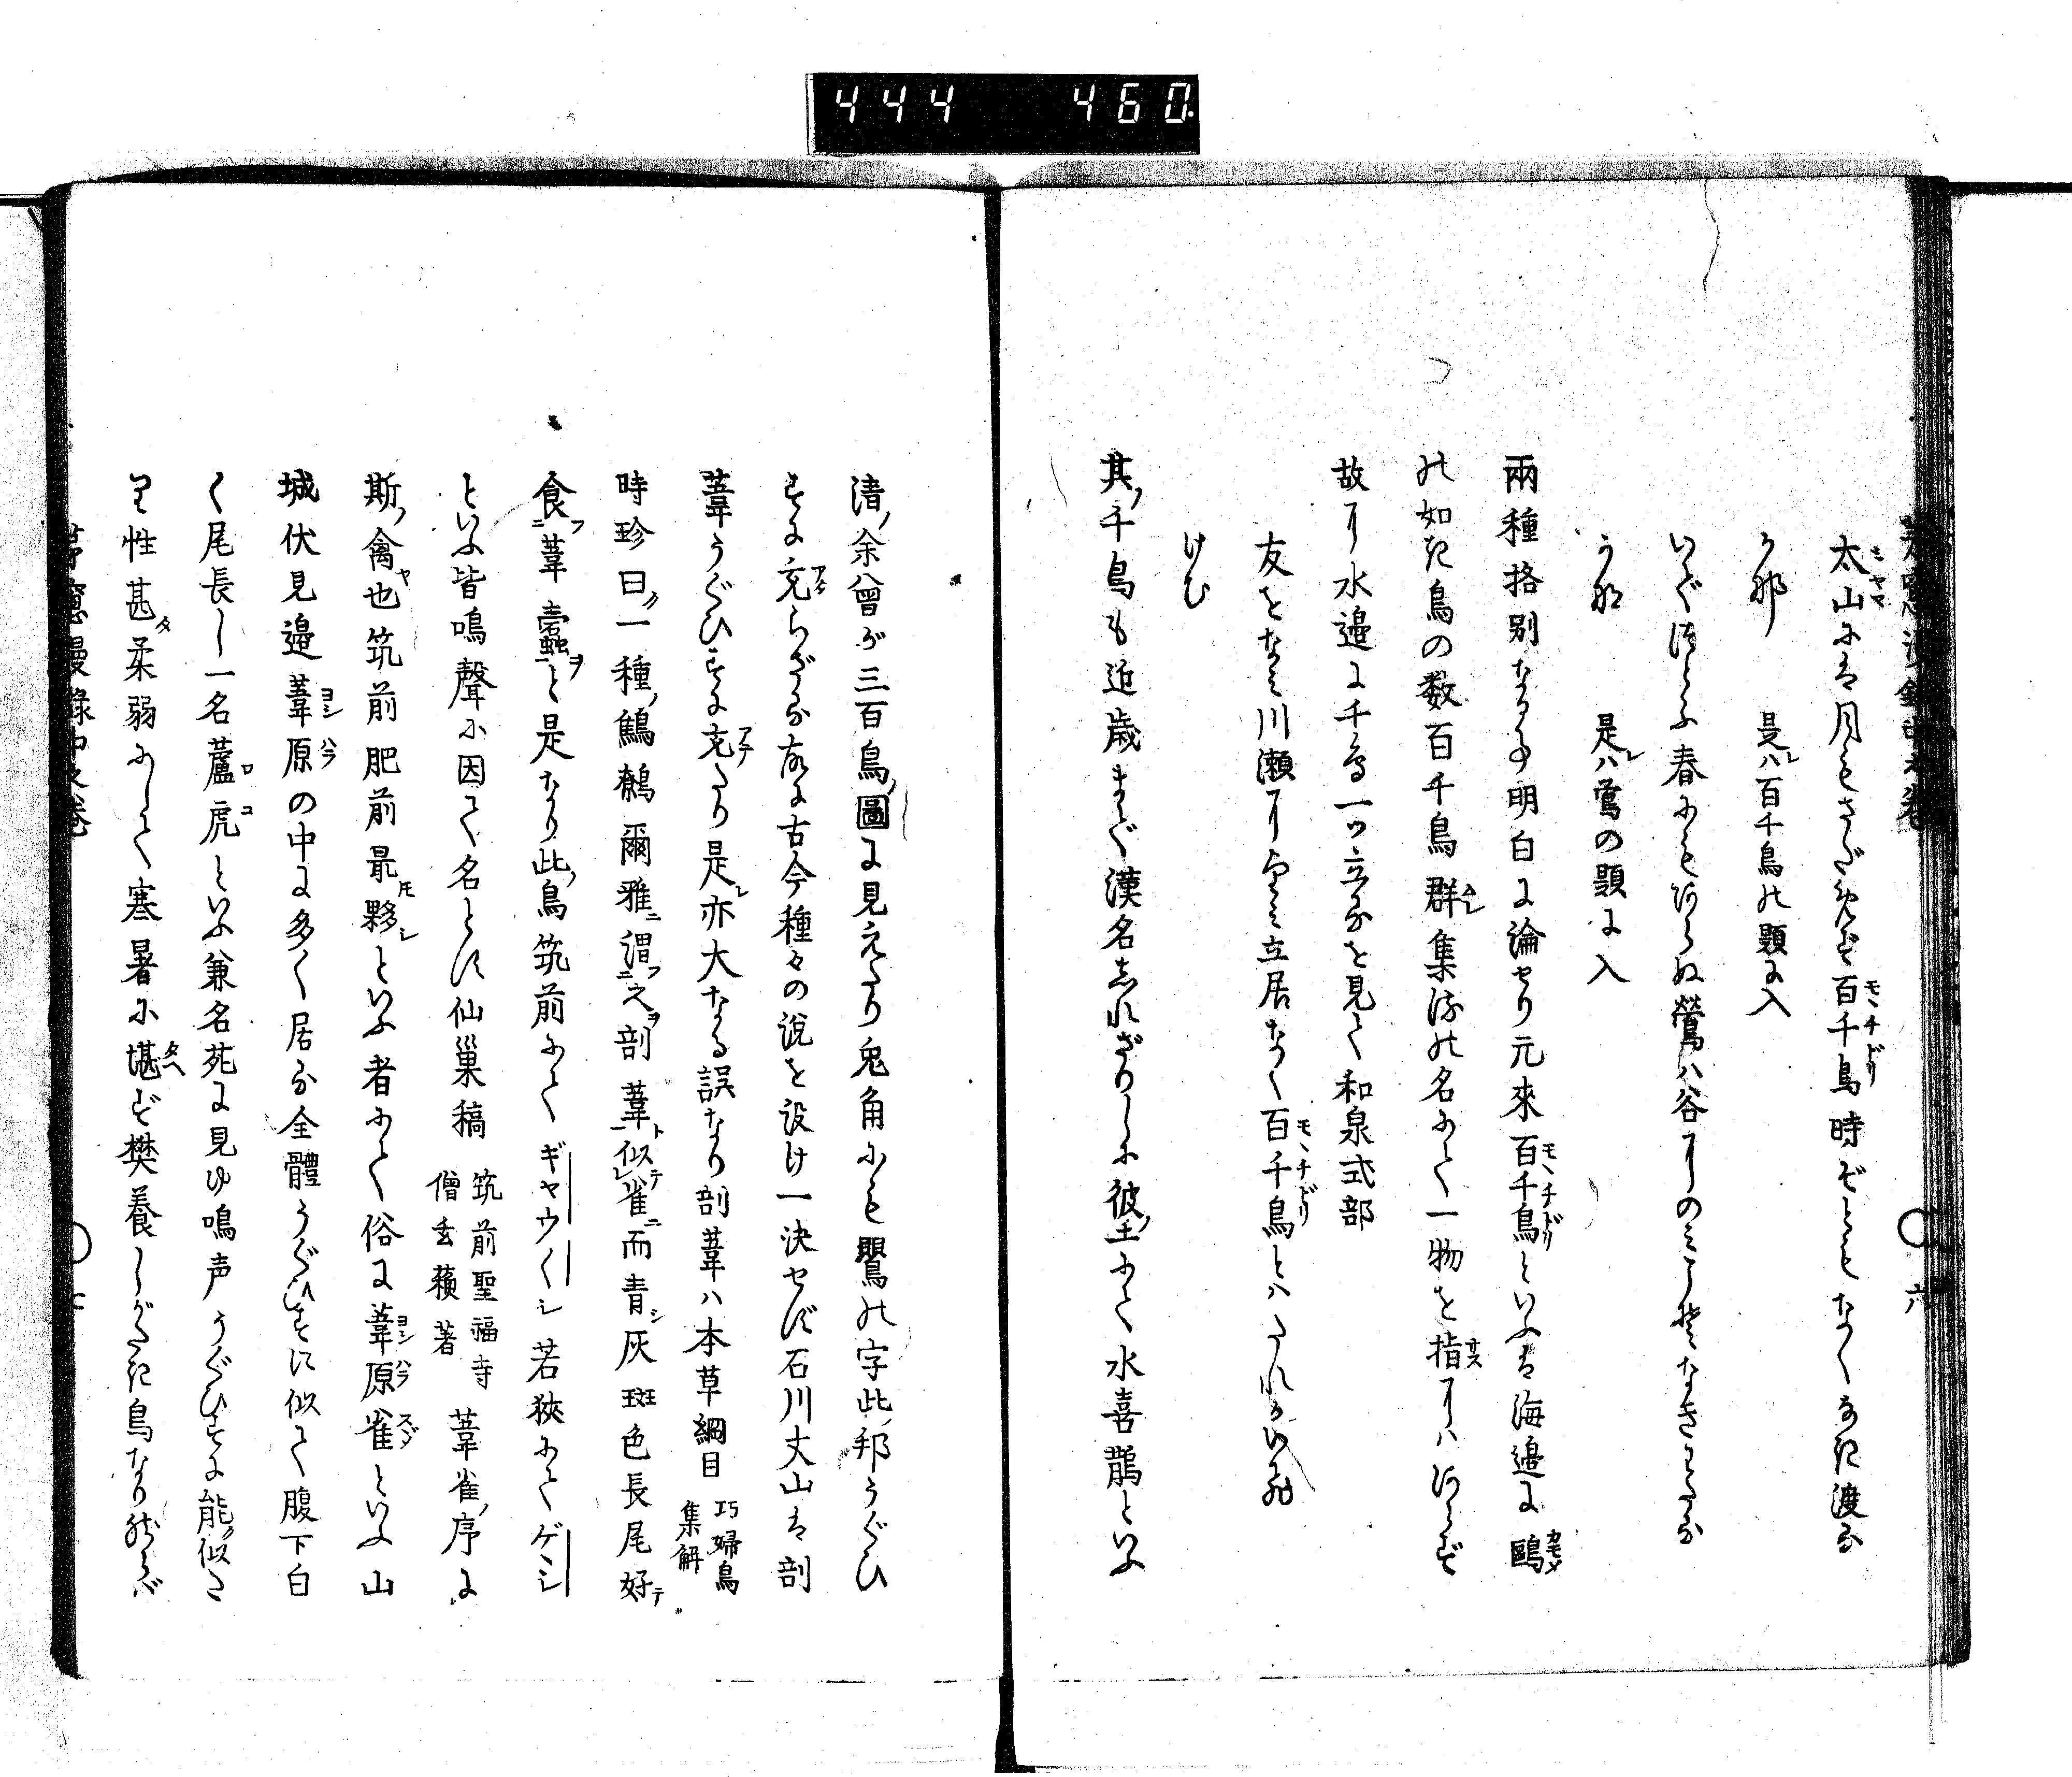 444 460
茅窓漫錄中之卷 六
太山にも月もさだめず百千鳥時ぞともなくなき渡る
かな 是ハ百千鳥の題に入
いくばくの春にもあらぬ鶯ハ谷にのみこそなきわたる
うれ 是ハ鶯の題に入
兩種格別なる事明白に論せり元來百千鳥といふは海邊に鷗
の如き鳥の数百千鳥群集する名にて一物を指にハあらず
故に水邊に千鳥一ツ立るを見て和泉式部
友をなみ川瀬に立居なく百千鳥とハたれかいひ
けむ
其千鳥も近歲まで漢名しれざりしに彼土にて水喜鵲といふ
淸余曾が三百鳥圖に見えたり兎角にも鸎の字此邦うぐひ
すに充らざる故に古今種々の說を設け一決せず石川丈山は剖
葦うぐひすに充たり是亦大なる誤なり剖葦ハ本草綱目 巧婦鳥集解
時珍曰一種鷦鷯爾雅謂之剖葦似雀而靑灰斑色長尾好
食葦蠹と是なり此鳥筑前にてギヤウ〱シ若狹にてゲヽシ
といふ皆鳴聲に因て名とす仙巢稿 筑前聖福寺僧玄蘇著 葦雀序に
斯禽也筑前肥前最夥といふ者にて俗に葦原雀といふ山
城伏見邊葦原の中に多く居る全體うぐひすに似て腹下白
く尾長し一名蘆虎といふ兼名苑に見ゆ鳴声うぐひすに能似た
り性甚柔弱にして寒暑に堪ず樊養しがたき鳥なり然らバ
茅窓漫錄中之卷 七